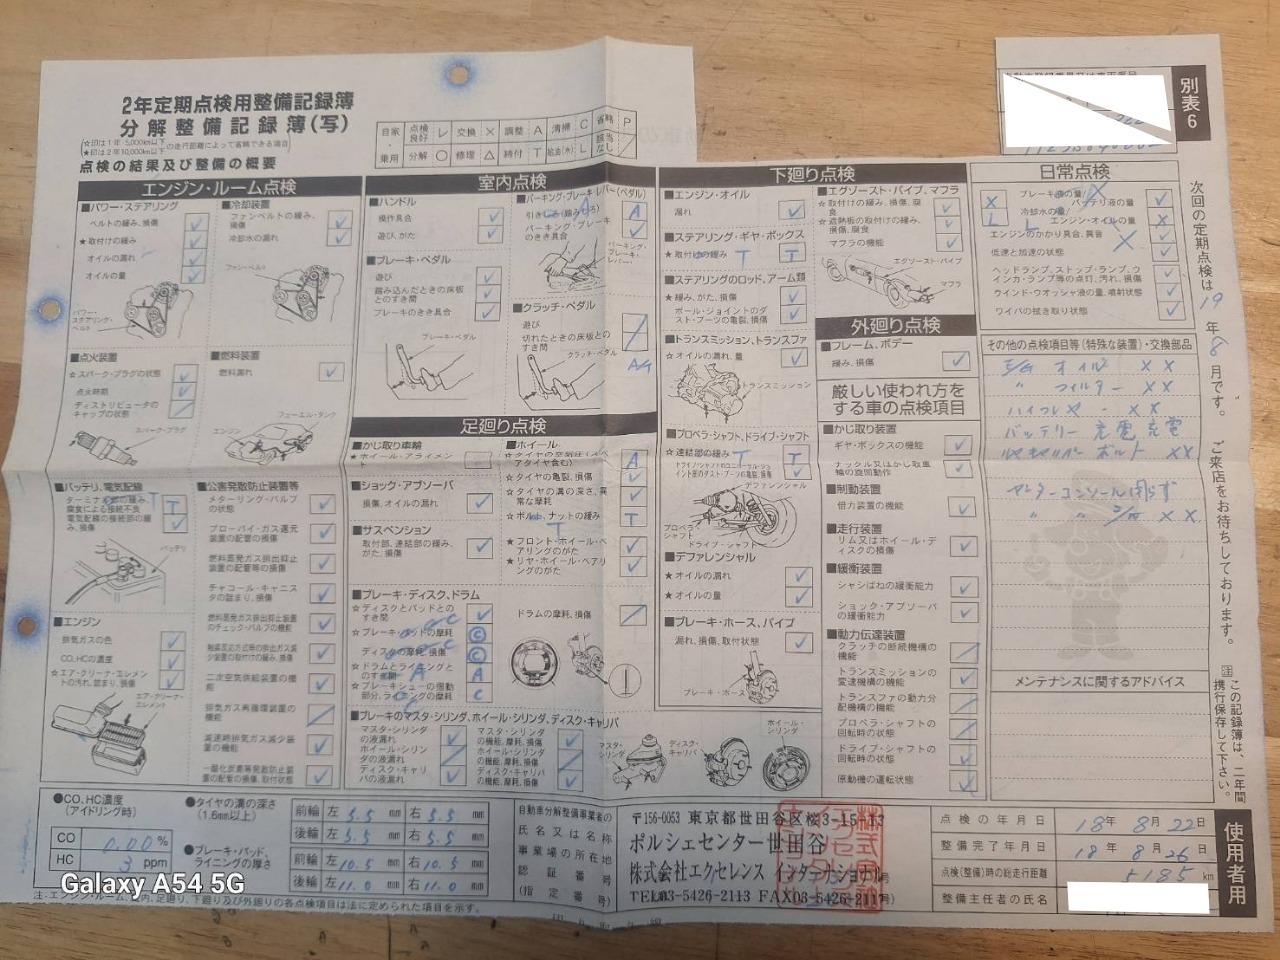 2年定期点検用整備記録簿
分解整備記録簿(写)
☆印は1年・5,000km以下
★印は2年10,000km以下
の走行距離によって省略できる場合
点検の結果及び整備の概要
自家 点検良好 レ 交換 × 調整 A 清掃 C 省略 P
乗用 分解 ○ 修理 △ 締付 T 給油(水) L 該当なし /
エンジン・ルーム点検
■パワー・ステアリング
ベルトの緩み、損傷
★取付けの緩み
オイルの漏れ
オイルの量
パワー・ステアリング・ベルト
■冷却装置
ファンベルトの緩み、損傷
冷却水の漏れ
ファン・ベルト
■点火装置
☆スパーク・プラグの状態
点火時期
ディストリビュータのキャップの状態
スパーク・プラグ
■燃料装置
燃料漏れ
フューエル・タンク
エンジン
■バッテリ、電気配線
ターミナルの緩み、腐食による接続不良
電気配線の接続部の緩み、損傷
バッテリ
■エンジン
排気ガスの色
CO、HCの濃度
☆エア・クリーナ・エレメントの汚れ、詰まり、損傷
エア・クリーナー・エレメント
■公害発散防止装置等
メターリング・バルブの状態
ブローバイ・ガス還元装置の配管の損傷
燃料蒸発ガス排出抑止装置の配管等の損傷
チャコール・キャニスタの詰まり、損傷
燃料蒸発ガス排出抑止装置のチェック・バルブの機能
触媒反応方式等排出ガス減少装置の取付けの緩み、損傷
二次空気供給装置の機能
排気ガス再循環装置の機能
減速時排気ガス減少装置の機能
一酸化炭素等発散防止装置の配管の損傷、取付状態
室内点検
■ハンドル
操作具合
遊び、がた
■ブレーキ・ペダル
遊び
踏み込んだときの床板とのすき間
ブレーキのきき具合
ブレーキ・ペダル
■パーキング・ブレーキ・レバー(ペダル)
引きしろ(踏みしろ) A
パーキング・ブレーキのきき具合
パーキング・ブレーキ・レバー
■クラッチ・ペダル
遊び
切れたときの床板とのすき間
クラッチ・ペダル
A/T
足廻り点検
■かじ取り車輪
★ホイール・アライメント
■ショック・アブソーバ
損傷、オイルの漏れ
■サスペンション
取付部、連結部の緩み、がた、損傷
■ホイール
☆タイヤの空気圧(スペアタイヤ含む) A
☆タイヤの亀裂、損傷
☆タイヤの溝の深さ、異常な摩耗
☆ボルト、ナットの緩み T
★フロント・ホイール・ベアリングのがた
★リヤ・ホイール・ベアリングのがた
■ブレーキ・ディスク、ドラム
☆ディスクとパッドとのすき間
☆ブレーキ・パッドの摩耗 C
ディスクの摩耗、損傷 C
☆ドラムとライニングとのすき間 A
☆ブレーキシューの摺動部分、ライニングの摩耗 C
ドラムの摩耗、損傷
■ブレーキのマスタ・シリンダ、ホイール・シリンダ、ディスク・キャリパ
マスタ・シリンダの液漏れ
ホイール・シリンダの液漏れ
ディスク・キャリパの液漏れ
マスタ・シリンダの機能、摩耗、損傷
ホイール・シリンダの機能、摩耗、損傷
ディスク・キャリパの機能、摩耗、損傷
マスタ・シリンダ
ディスク・キャリパ
ホイール・シリンダ
下廻り点検
■エンジン・オイル
漏れ
■ステアリング・ギヤ・ボックス
★取付けの緩み T T
■ステアリングのロッド、アーム類
★緩み、がた、損傷
ボール・ジョイントのダスト・ブーツの亀裂、損傷
■トランスミッション、トランスファ
☆オイルの漏れ、量
トランスミッション
■プロペラ・シャフト、ドライブ・シャフト
★連結部の緩み T T
ドライブ・シャフトのユニバーサル・ジョイント部のダスト・ブーツの亀裂、損傷
デファレンシャル
プロペラ・シャフト
ドライブ・シャフト
■デファレンシャル
★オイルの漏れ
★オイルの量
■ブレーキ・ホース、パイプ
漏れ、損傷、取付状態
ブレーキ・ホース
■エグゾースト・パイプ、マフラ
☆取付けの緩み、損傷、腐食
☆遮熱板の取付けの緩み、損傷、腐食
マフラの機能
エグゾースト・パイプ
マフラ
外廻り点検
■フレーム、ボデー
緩み、損傷
厳しい使われ方をする車の点検項目
■かじ取装置
ギヤ・ボックスの機能
ナックル又はかじ取車輪の旋回動作
■制動装置
倍力装置の機能
■走行装置
リム又はホイール・ディスクの損傷
■緩衝装置
シャシばねの緩衝能力
ショック・アブソーバの緩衝能力
■動力伝達装置
クラッチの断続機構の機能
トランスミッションの変速機構の機能
トランスファの動力分配機構の機能
プロペラ・シャフトの回転時の状態
ドライブ・シャフトの回転時の状態
原動機の運転状態
日常点検
ブレーキ液の量
冷却水の量
バッテリ液の量
エンジン・オイルの量
エンジンのかかり具合、異音
低速と加速の状態
ヘッドランプ、ストップ・ランプ、ウインカ・ランプ等の点灯、汚れ、損傷
ウインド・ウオッシャ液の量、噴射状態
ワイパの拭き取り状態
その他の点検項目等(特殊な装置)・交換部品
E/G オイル ××
〃 フィルター ××
バッテリー 充電 充電
ボルト ××
センターコンソール閉らず
メンテナンスに関するアドバイス
別表6
次回の定期点検は19年8月です。ご来店をお待ちしております。
注 この記録簿は、二年間携行保存して下さい。
使用者用
●CO、HC濃度(アイドリング時)
CO 0.00%
HC 3 ppm
●タイヤの溝の深さ(1.6mm以上)
前輪 左 5.5 mm 右 5.5 mm
後輪 左 5.5 mm 右 5.5 mm
●ブレーキ・パッド、ライニングの厚さ
前輪 左 10.5 mm 右 10.5 mm
後輪 左 11.0 mm 右 11.0 mm
自動車分解整備事業者の
氏名又は名称
事業場の所在地
認証番号
(指定番号)
〒156-0053 東京都世田谷区桜3-15-13
ポルシェセンター世田谷
株式会社エクセレンス インタナショナル
TEL03-5426-2113 FAX03-5426-2117
点検の年月日 18年 8月 22日
整備完了年月日 18年 8月 26日
点検(整備)時の総走行距離 5185 km
整備主任者の氏名
注.エンジン・ルーム、室内、足廻り、下廻り及び外廻りの各点検項目は法に定められた項目を示す。
Galaxy A54 5G